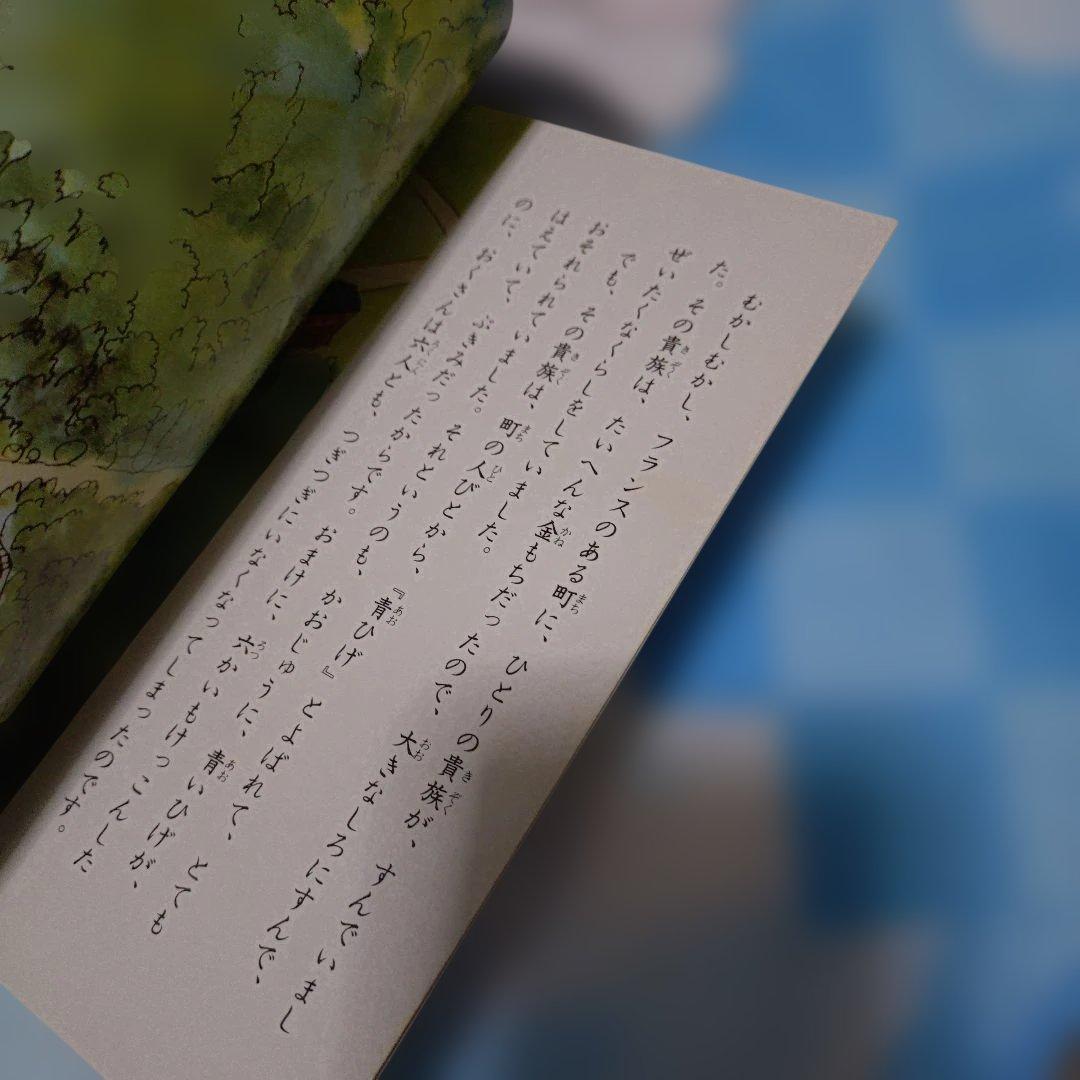 むかしむかし、フランスのある町に、ひとりの貴族が、すんでいまし
た。その貴族は、たいへんな金もちだったので、大きなしろにすんで、
ぜいたくなくらしをしていました。
でも、その貴族は、町の人びとから、『青ひげ』とよばれて、とても
おそれられていました。それというのも、かおじゅうに、青いひげが、
はえていて、ぶきみだったからです。おまけに、六かいもけっこんした
のに、おくさんは六人とも、つぎつぎにいなくなってしまったのです。